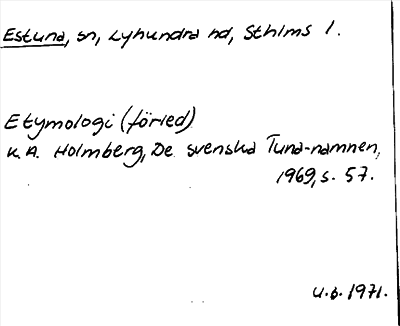 Estuna, sn, Lyhundra hd, Sthlms l.
Etymologi (förled)
K.A. Holmberg, De svenska Tuna-namnen,
1969, s. 57.
U.b. 1971.